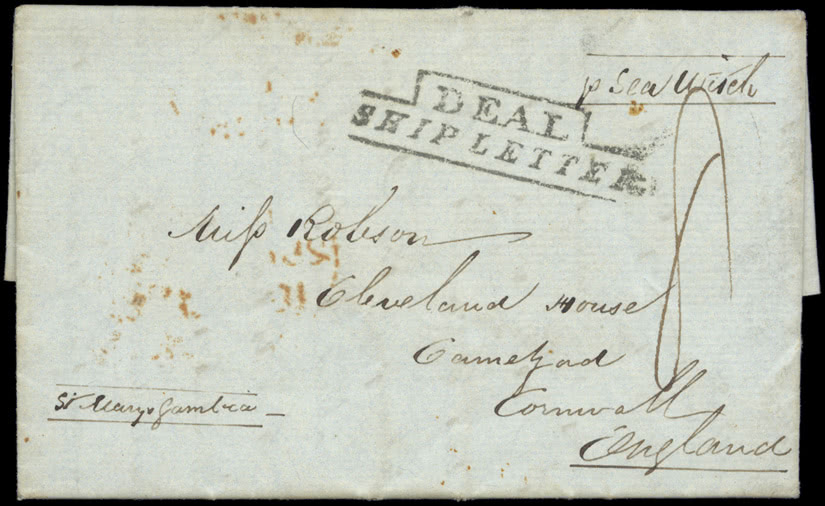 p Sea Witch
DEAL
SHIP LETTER
8
Miss Robson
Cleveland House
Camelford
Cornwall
England
St Marys Gambia